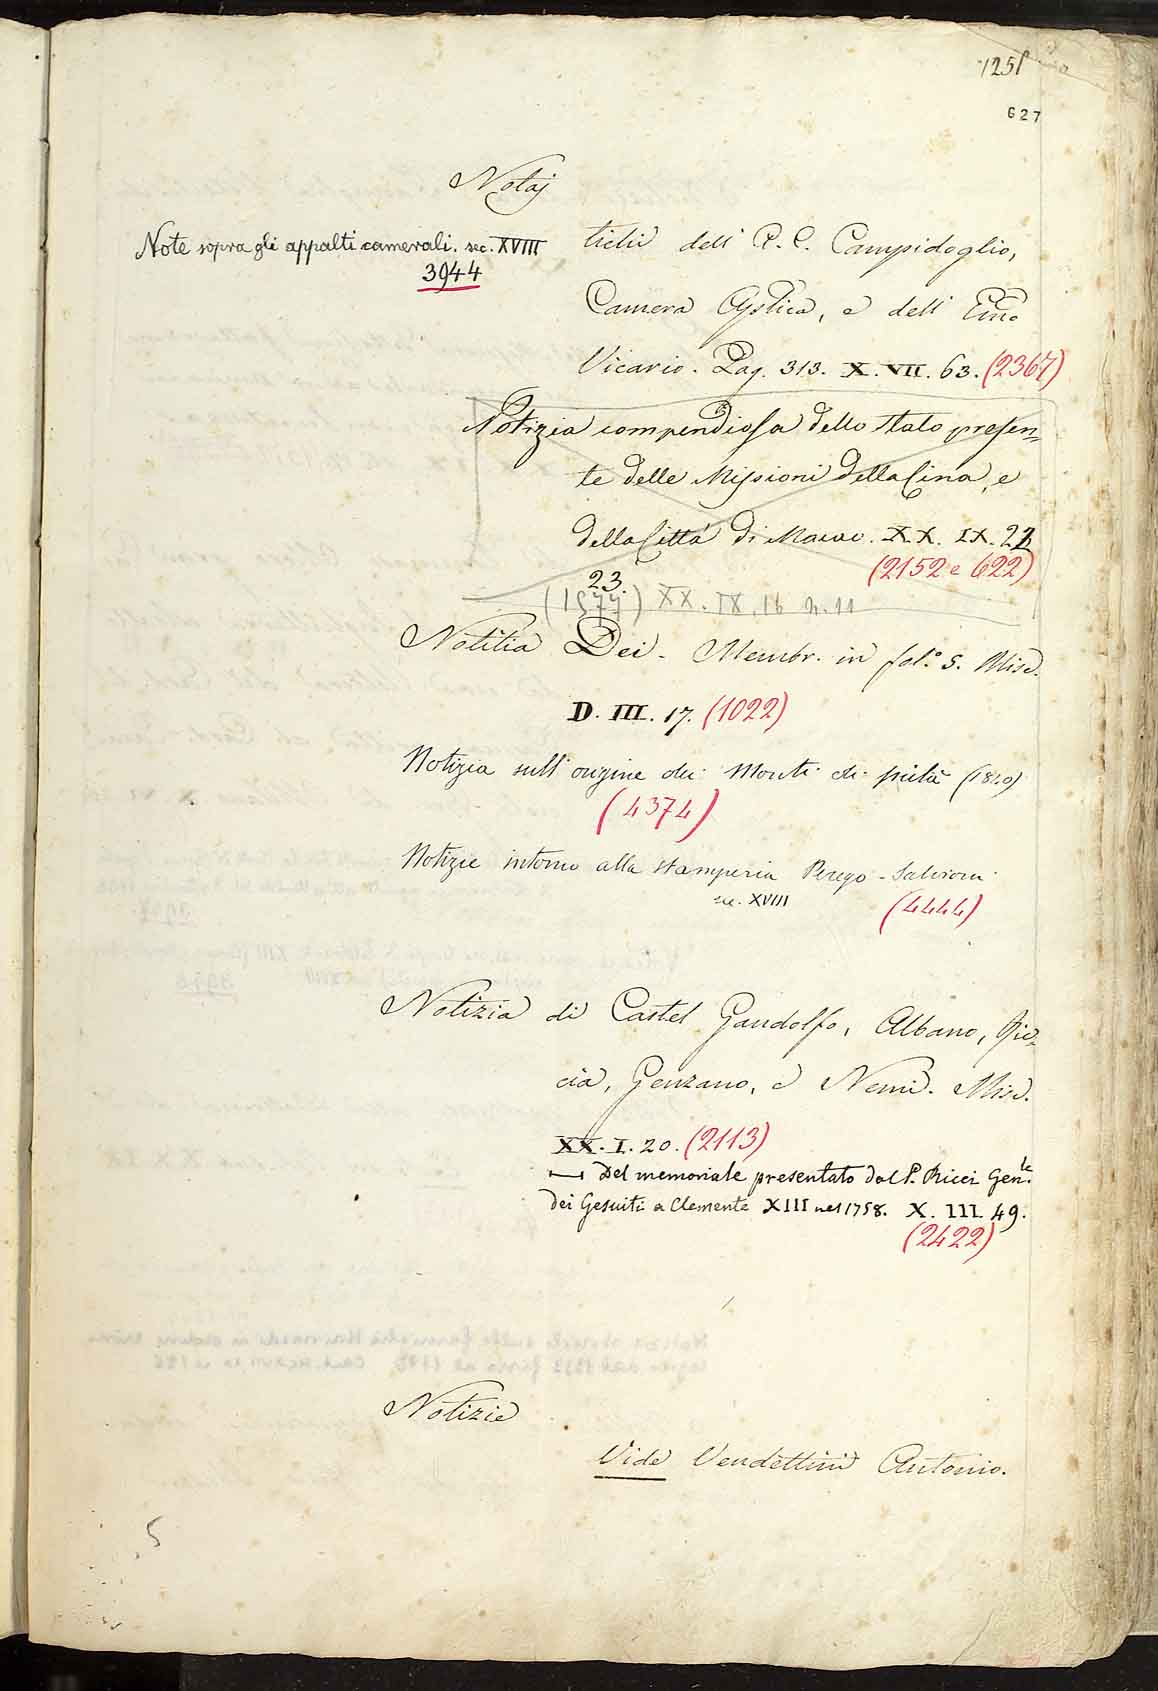 1251
627
Notaj
Note sopra gli appalti camerali. sec. XVIII
3944
dell' R. C. Campidoglio,
Camera Aplica, e dell' Emo
Vicario. Pag. 313. X. VII. 63. (2367)
Notizia compendiosa dello stato presen-
te delle Missioni della Cina, e
della Città di Macao. XX. IX. 22
(2152 e 622)
23.
(1577) XX. IX. 16 n. 11
Notitia Dei. Membr. in fol.° S. Misc.
D. III. 17. (1022)
Notizia sull'origine dei Monti di pietà
(4374)
Notizie intorno alla stamperia Perego-Salvioni
sec. XVIII (4444)
Notizia di Castel Gandolfo, Albano, Ric-
cia, Genzano, e Nemi. Misc.
XX. I. 20. (2113)
Del memoriale presentato dal P. Ricci Gen.le
dei Gesuiti a Clemente XIII nel 1758. X. III. 49.
(2422)
Notizie
Vide Vendettini Antonio.